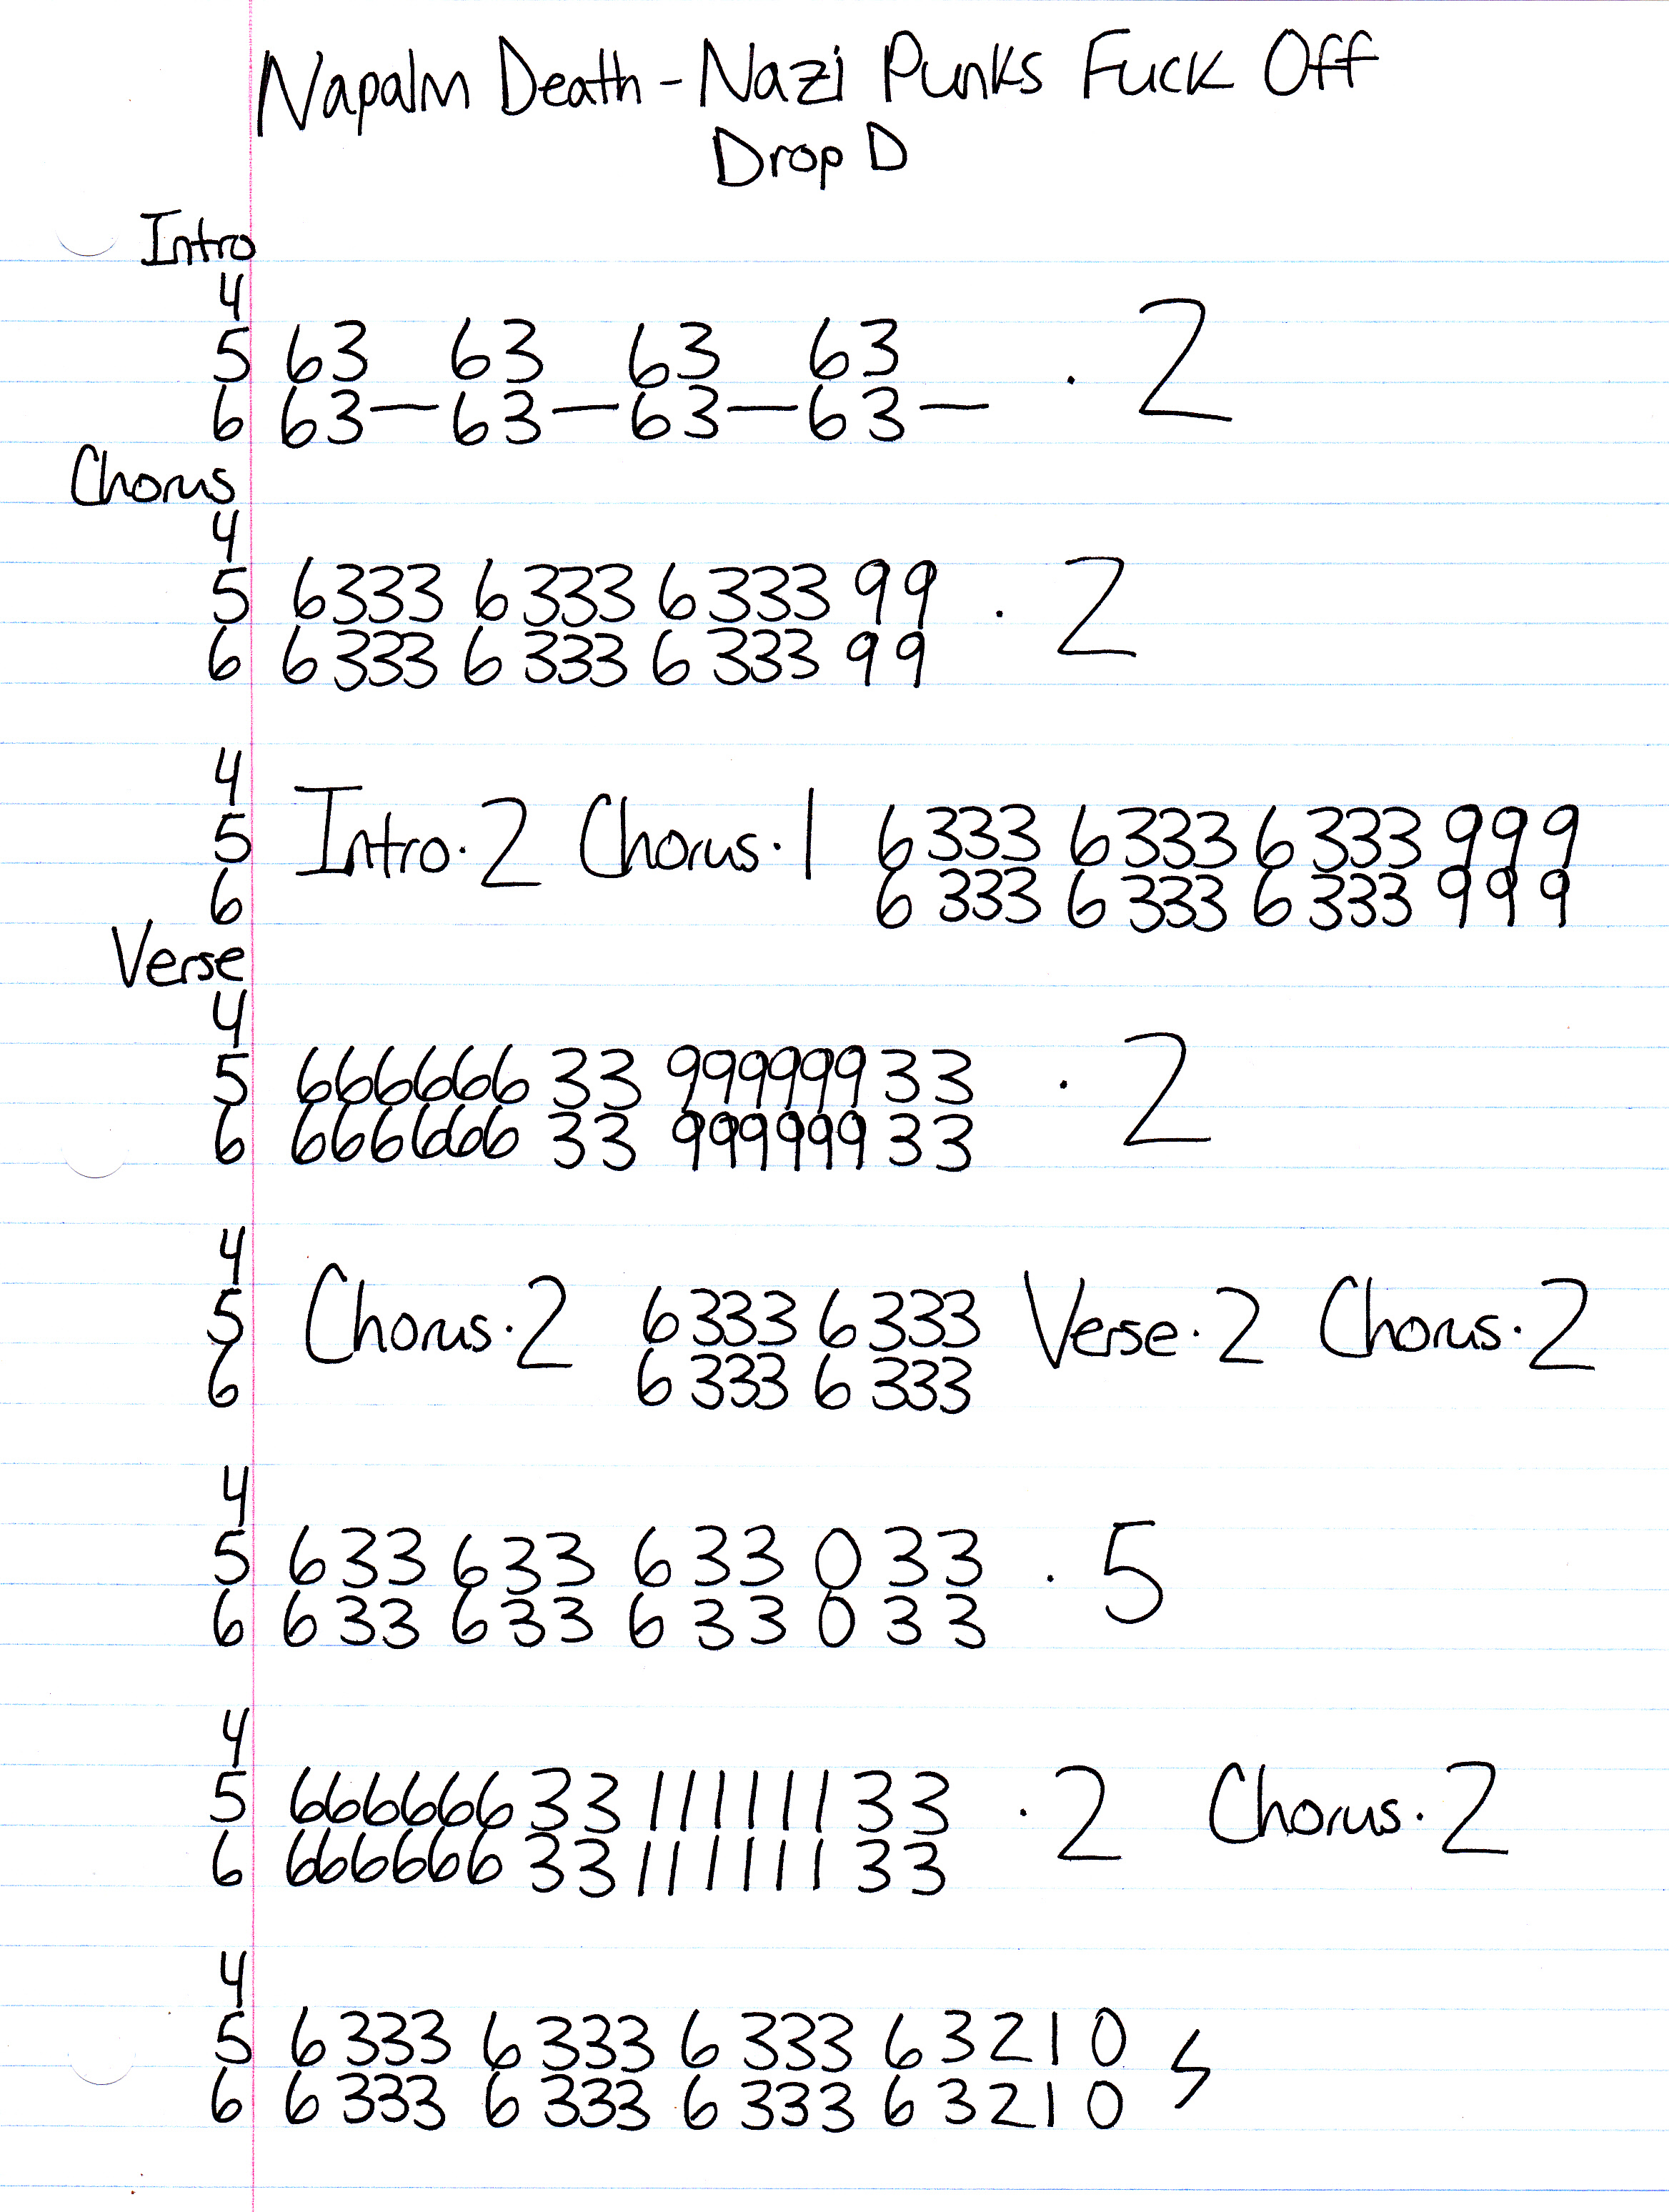 Napalm Death - Nazi Punks Fuck Off
Drop D
Intro
4
5 63 63 63 63 · 2
6 63—63—63—63—
Chorus
4
5 6333 6333 6333 99 · 2
6 6333 6333 6333 99
4
5 Intro · 2 Chorus · 1 6333 6333 6333 999
6 6333 6333 6333 999
Verse
4
5 666666 33 999999 33 · 2
6 666666 33 999999 33
4
5 Chorus · 2 6333 6333 Verse · 2 Chorus · 2
6 6333 6333
4
5 633 633 633 033 · 5
6 633 633 633 033
4
5 666666 33 111111 33 · 2 Chorus · 2
6 666666 33 111111 33
4
5 6333 6333 6333 63210
6 6333 6333 6333 63210